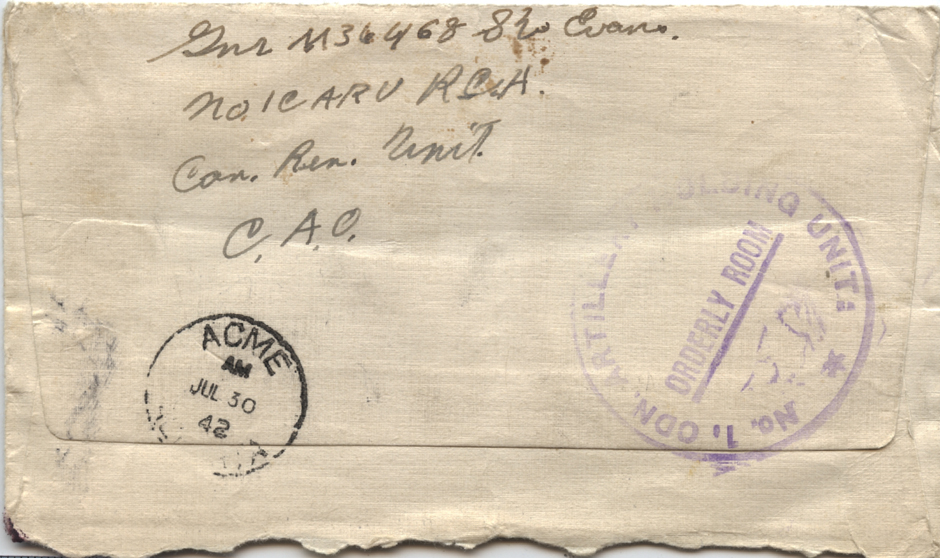 Gnr M36468 Evans.
No. 1 CARU RCA.
Can. Ren. Unit.
C. A. O.
ACME
AM
JUL 30
42
No. 1, CDN. ARTILLERY HOLDING UNIT
ORDERLY ROOM